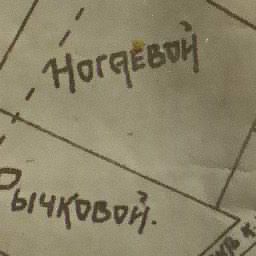 Ногаевой
Рычковой.